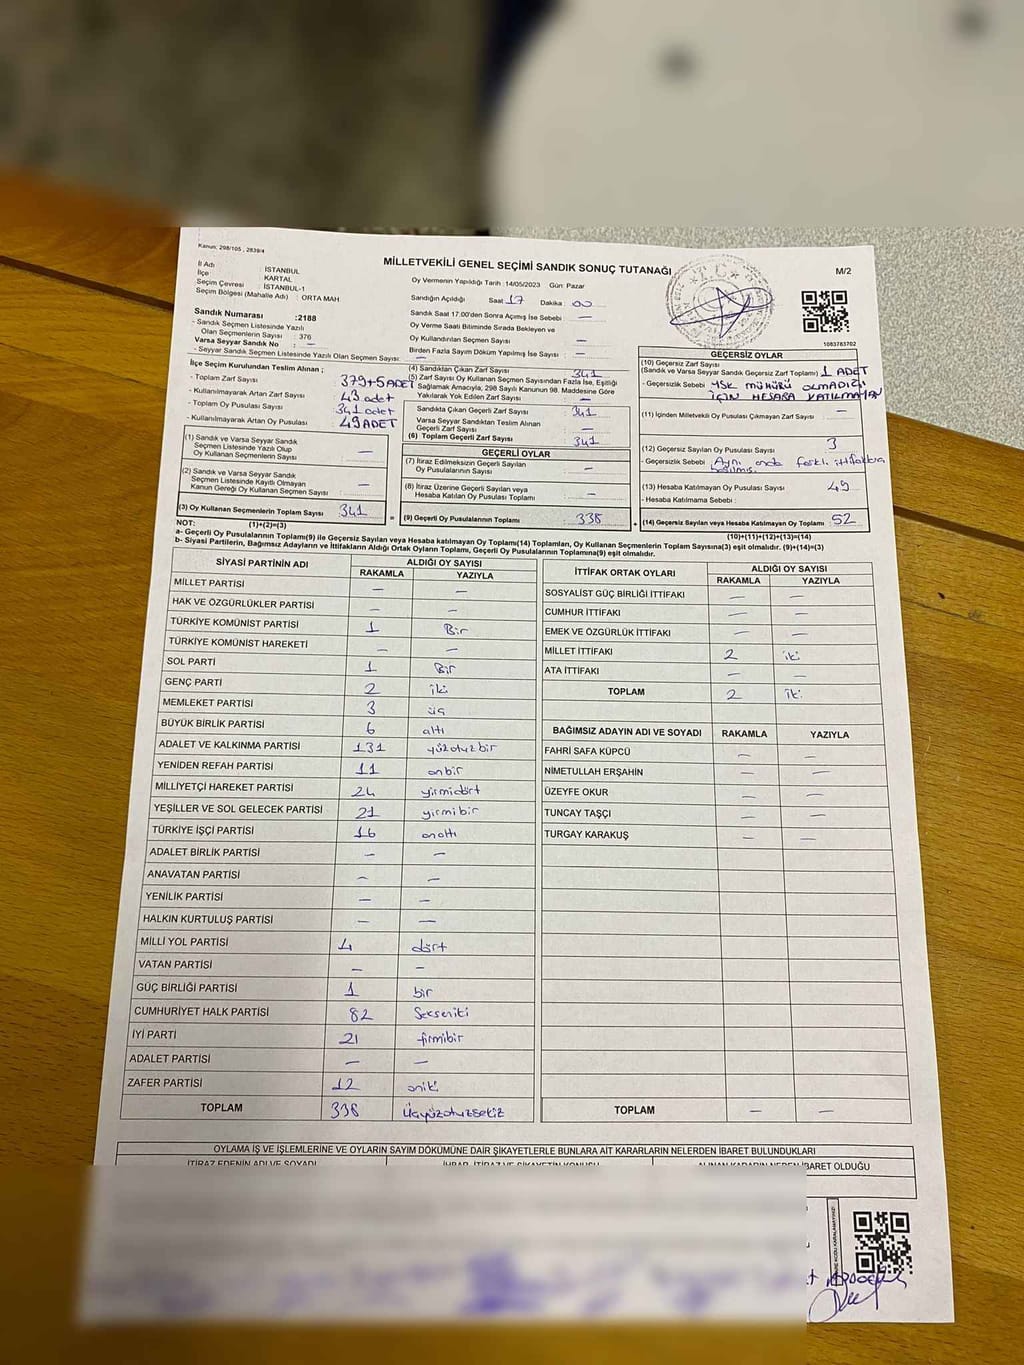 Kanun: 298/105 , 2839/4
MİLLETVEKİLİ GENEL SEÇİMİ SANDIK SONUÇ TUTANAĞI
M/2
İl Adı : İSTANBUL
İlçe : KARTAL
Seçim Çevresi : İSTANBUL-1
Seçim Bölgesi (Mahalle Adı) : ORTA MAH
Oy Vermenin Yapıldığı Tarih :14/05/2023 Gün: Pazar
Sandığın Açıldığı Saat 17 Dakika 00
Sandık Saat 17.00'den Sonra Açımış İse Sebebi —
Oy Verme Saati Bitiminde Sırada Bekleyen ve
Oy Kullandırılan Seçmen Sayısı —
Birden Fazla Sayım Döküm Yapılmış İse Sayısı —
1083783702
Sandık Numarası :2188
- Sandık Seçmen Listesinde Yazılı
Olan Seçmenlerin Sayısı : 376
Varsa Seyyar Sandık No : —
- Seyyar Sandık Seçmen Listesinde Yazılı Olan Seçmen Sayısı: —
İlçe Seçim Kurulundan Teslim Alınan ;
- Toplam Zarf Sayısı 379+5 ADET
- Kullanılmayarak Artan Zarf Sayısı 43 adet
- Toplam Oy Pusulası Sayısı 341 adet
- Kullanılmayarak Artan Oy Pusulası 49 ADET
(1) Sandık ve Varsa Seyyar Sandık
Seçmen Listesinde Yazılı Olup
Oy Kullanan Seçmenlerin Sayısı —
(2) Sandık ve Varsa Seyyar Sandık
Seçmen Listesinde Kayıtlı Olmayan
Kanun Gereği Oy Kullanan Seçmen Sayısı —
(3) Oy Kullanan Seçmenlerin Toplam Sayısı 341
(4) Sandıktan Çıkan Zarf Sayısı 341
(5) Zarf Sayısı Oy Kullanan Seçmen Sayısından Fazla İse, Eşitliği
Sağlamak Amacıyla, 298 Sayılı Kanunun 98. Maddesine Göre
Yakılarak Yok Edilen Zarf Sayısı —
Sandıkta Çıkan Geçerli Zarf Sayısı 341
Varsa Seyyar Sandıktan Teslim Alınan
Geçerli Zarf Sayısı —
(6) Toplam Geçerli Zarf Sayısı 341
GEÇERLİ OYLAR
(7) İtiraz Edilmeksizin Geçerli Sayılan
Oy Pusulalarının Sayısı —
(8) İtiraz Üzerine Geçerli Sayılan veya
Hesaba Katılan Oy Pusulası Toplamı —
= (9) Geçerli Oy Pusulalarının Toplamı 338
GEÇERSİZ OYLAR
(10) Geçersiz Zarf Sayısı
(Sandık ve Varsa Seyyar Sandık Geçersiz Zarf Toplamı) 1 ADET
- Geçersizlik Sebebi YSK MÜHÜRÜ OLMADIĞI
İÇİN HESABA KATILMAYAN
(11) İçinden Milletvekili Oy Pusulası Çıkmayan Zarf Sayısı —
(12) Geçersiz Sayılan Oy Pusulası Sayısı 3
- Geçersizlik Sebebi Aynı anda farklı ittifaklara
basılmış.
(13) Hesaba Katılmayan Oy Pusulası Sayısı 49
- Hesaba Katılmama Sebebi :
+ (14) Geçersiz Sayılan veya Hesaba Katılmayan Oy Toplamı : 52
NOT: (1)+(2)=(3)
(10)+(11)+(12)+(13)=(14)
a- Geçerli Oy Pusulaları Toplamı(9) ile Geçersiz Sayılan veya Hesaba Katılmayan Oy Toplamı(14) Toplamları, Oy Kullanan Seçmenlerin Toplam Sayısına(3) eşit olmalıdır. (9)+(14)=(3)
b- Siyasi Partilerin, Bağımsız Adayların ve İttifakların Aldığı Ortak Oyların Toplamı, Geçerli Oy Pusulalarının Toplamına(9) eşit olmalıdır.
SİYASİ PARTİNİN ADI ALDIĞI OY SAYISI
RAKAMLA YAZIYLA
MİLLET PARTİSİ — —
HAK VE ÖZGÜRLÜKLER PARTİSİ — —
TÜRKİYE KOMÜNİST PARTİSİ 1 Bir
TÜRKİYE KOMÜNİST HAREKETİ — —
SOL PARTİ 1 Bir
GENÇ PARTİ 2 iki
MEMLEKET PARTİSİ 3 üç
BÜYÜK BİRLİK PARTİSİ 6 altı
ADALET VE KALKINMA PARTİSİ 131 yüzotuzbir
YENİDEN REFAH PARTİSİ 11 onbir
MİLLİYETÇİ HAREKET PARTİSİ 24 yirmidört
YEŞİLLER VE SOL GELECEK PARTİSİ 21 yirmibir
TÜRKİYE İŞÇİ PARTİSİ 16 onaltı
ADALET BİRLİK PARTİSİ — —
ANAVATAN PARTİSİ — —
YENİLİK PARTİSİ — —
HALKIN KURTULUŞ PARTİSİ — —
MİLLİ YOL PARTİSİ 4 dört
VATAN PARTİSİ — —
GÜÇ BİRLİĞİ PARTİSİ 1 bir
CUMHURİYET HALK PARTİSİ 82 Sekseniki
İYİ PARTİ 21 yirmibir
ADALET PARTİSİ — —
ZAFER PARTİSİ 12 oniki
TOPLAM 338 üçyüzotuzsekiz
İTTİFAK ORTAK OYLARI ALDIĞI OY SAYISI
RAKAMLA YAZIYLA
SOSYALİST GÜÇ BİRLİĞİ İTTİFAKI — —
CUMHUR İTTİFAKI — —
EMEK VE ÖZGÜRLÜK İTTİFAKI — —
MİLLET İTTİFAKI 2 iki
ATA İTTİFAKI — —
TOPLAM 2 iki
BAĞIMSIZ ADAYIN ADI VE SOYADI RAKAMLA YAZIYLA
FAHRİ SAFA KÜPCÜ — —
NİMETULLAH ERŞAHİN — —
ÜZEYFE OKUR — —
TUNCAY TAŞÇI — —
TURGAY KARAKUŞ — —
TOPLAM — —
OYLAMA İŞ VE İŞLEMLERİNE VE OYLARIN SAYIM DÖKÜMÜNE DAİR ŞİKAYETLERLE BUNLARA AİT KARARLARIN NELERDEN İBARET BULUNDUKLARI
İTİRAZ EDENİN ADI VE SOYADI
ALINAN KARARIN NEDEN İBARET OLDUĞU